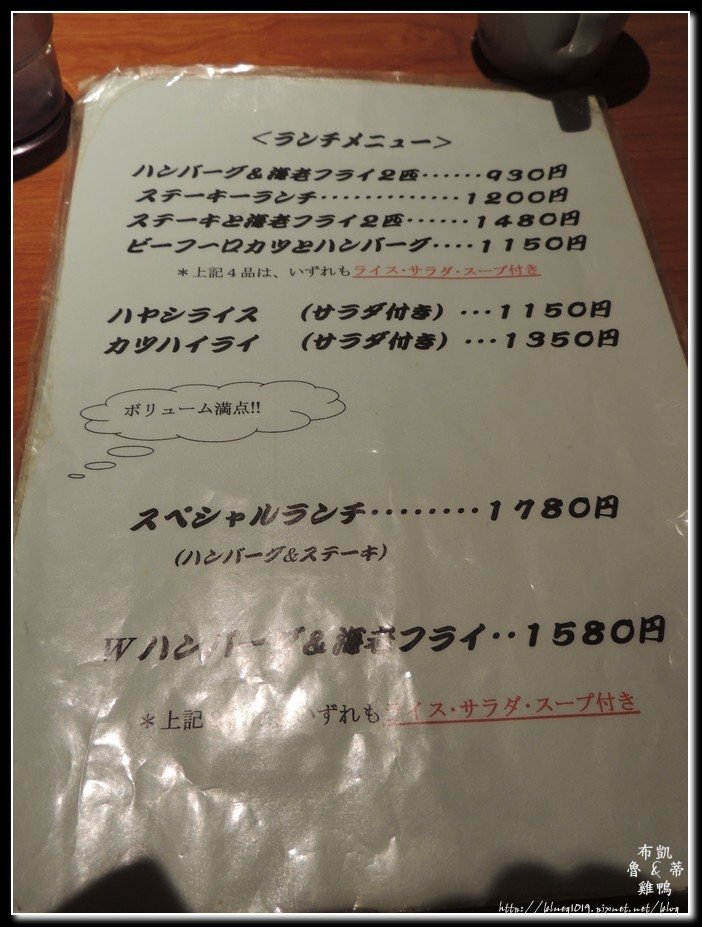 ＜ランチメニュー＞
ハンバーグ&海老フライ２匹‥‥‥９３０円
ステーキーランチ‥‥‥‥‥‥‥１２００円
ステーキと海老フライ２匹‥‥‥１４８０円
ビーフ一口カツとハンバーグ‥‥１１５０円
＊上記４品は、いずれもライス・サラダ・スープ付き
ハヤシライス （サラダ付き）…１１５０円
カツハイライ （サラダ付き）…１３５０円
ボリューム満点!!
スペシャルランチ‥‥‥‥‥１７８０円
（ハンバーグ&ステーキ）
Wハンバーグ&海老フライ‥１５８０円
＊上記 いずれもライス・サラダ・スープ付き
布凱
魯 & 蒂
雞鴨
http://blueq1019.pixnet.net/blog